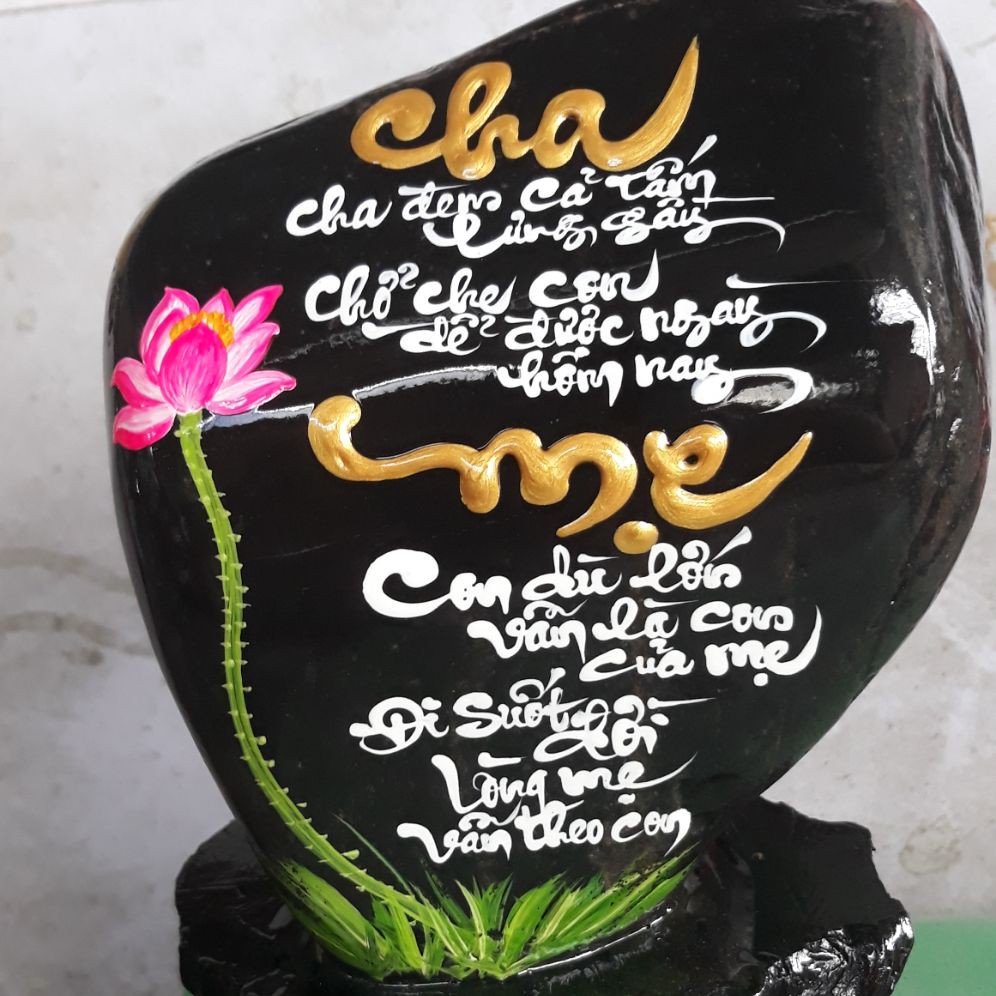 Cha
Cha đem cả tấm
lưng gầy
Chở che con
để được ngày
hôm nay
Mẹ
Con dù lớn
vẫn là con
của mẹ
Đi suốt đời
lòng mẹ
vẫn theo con